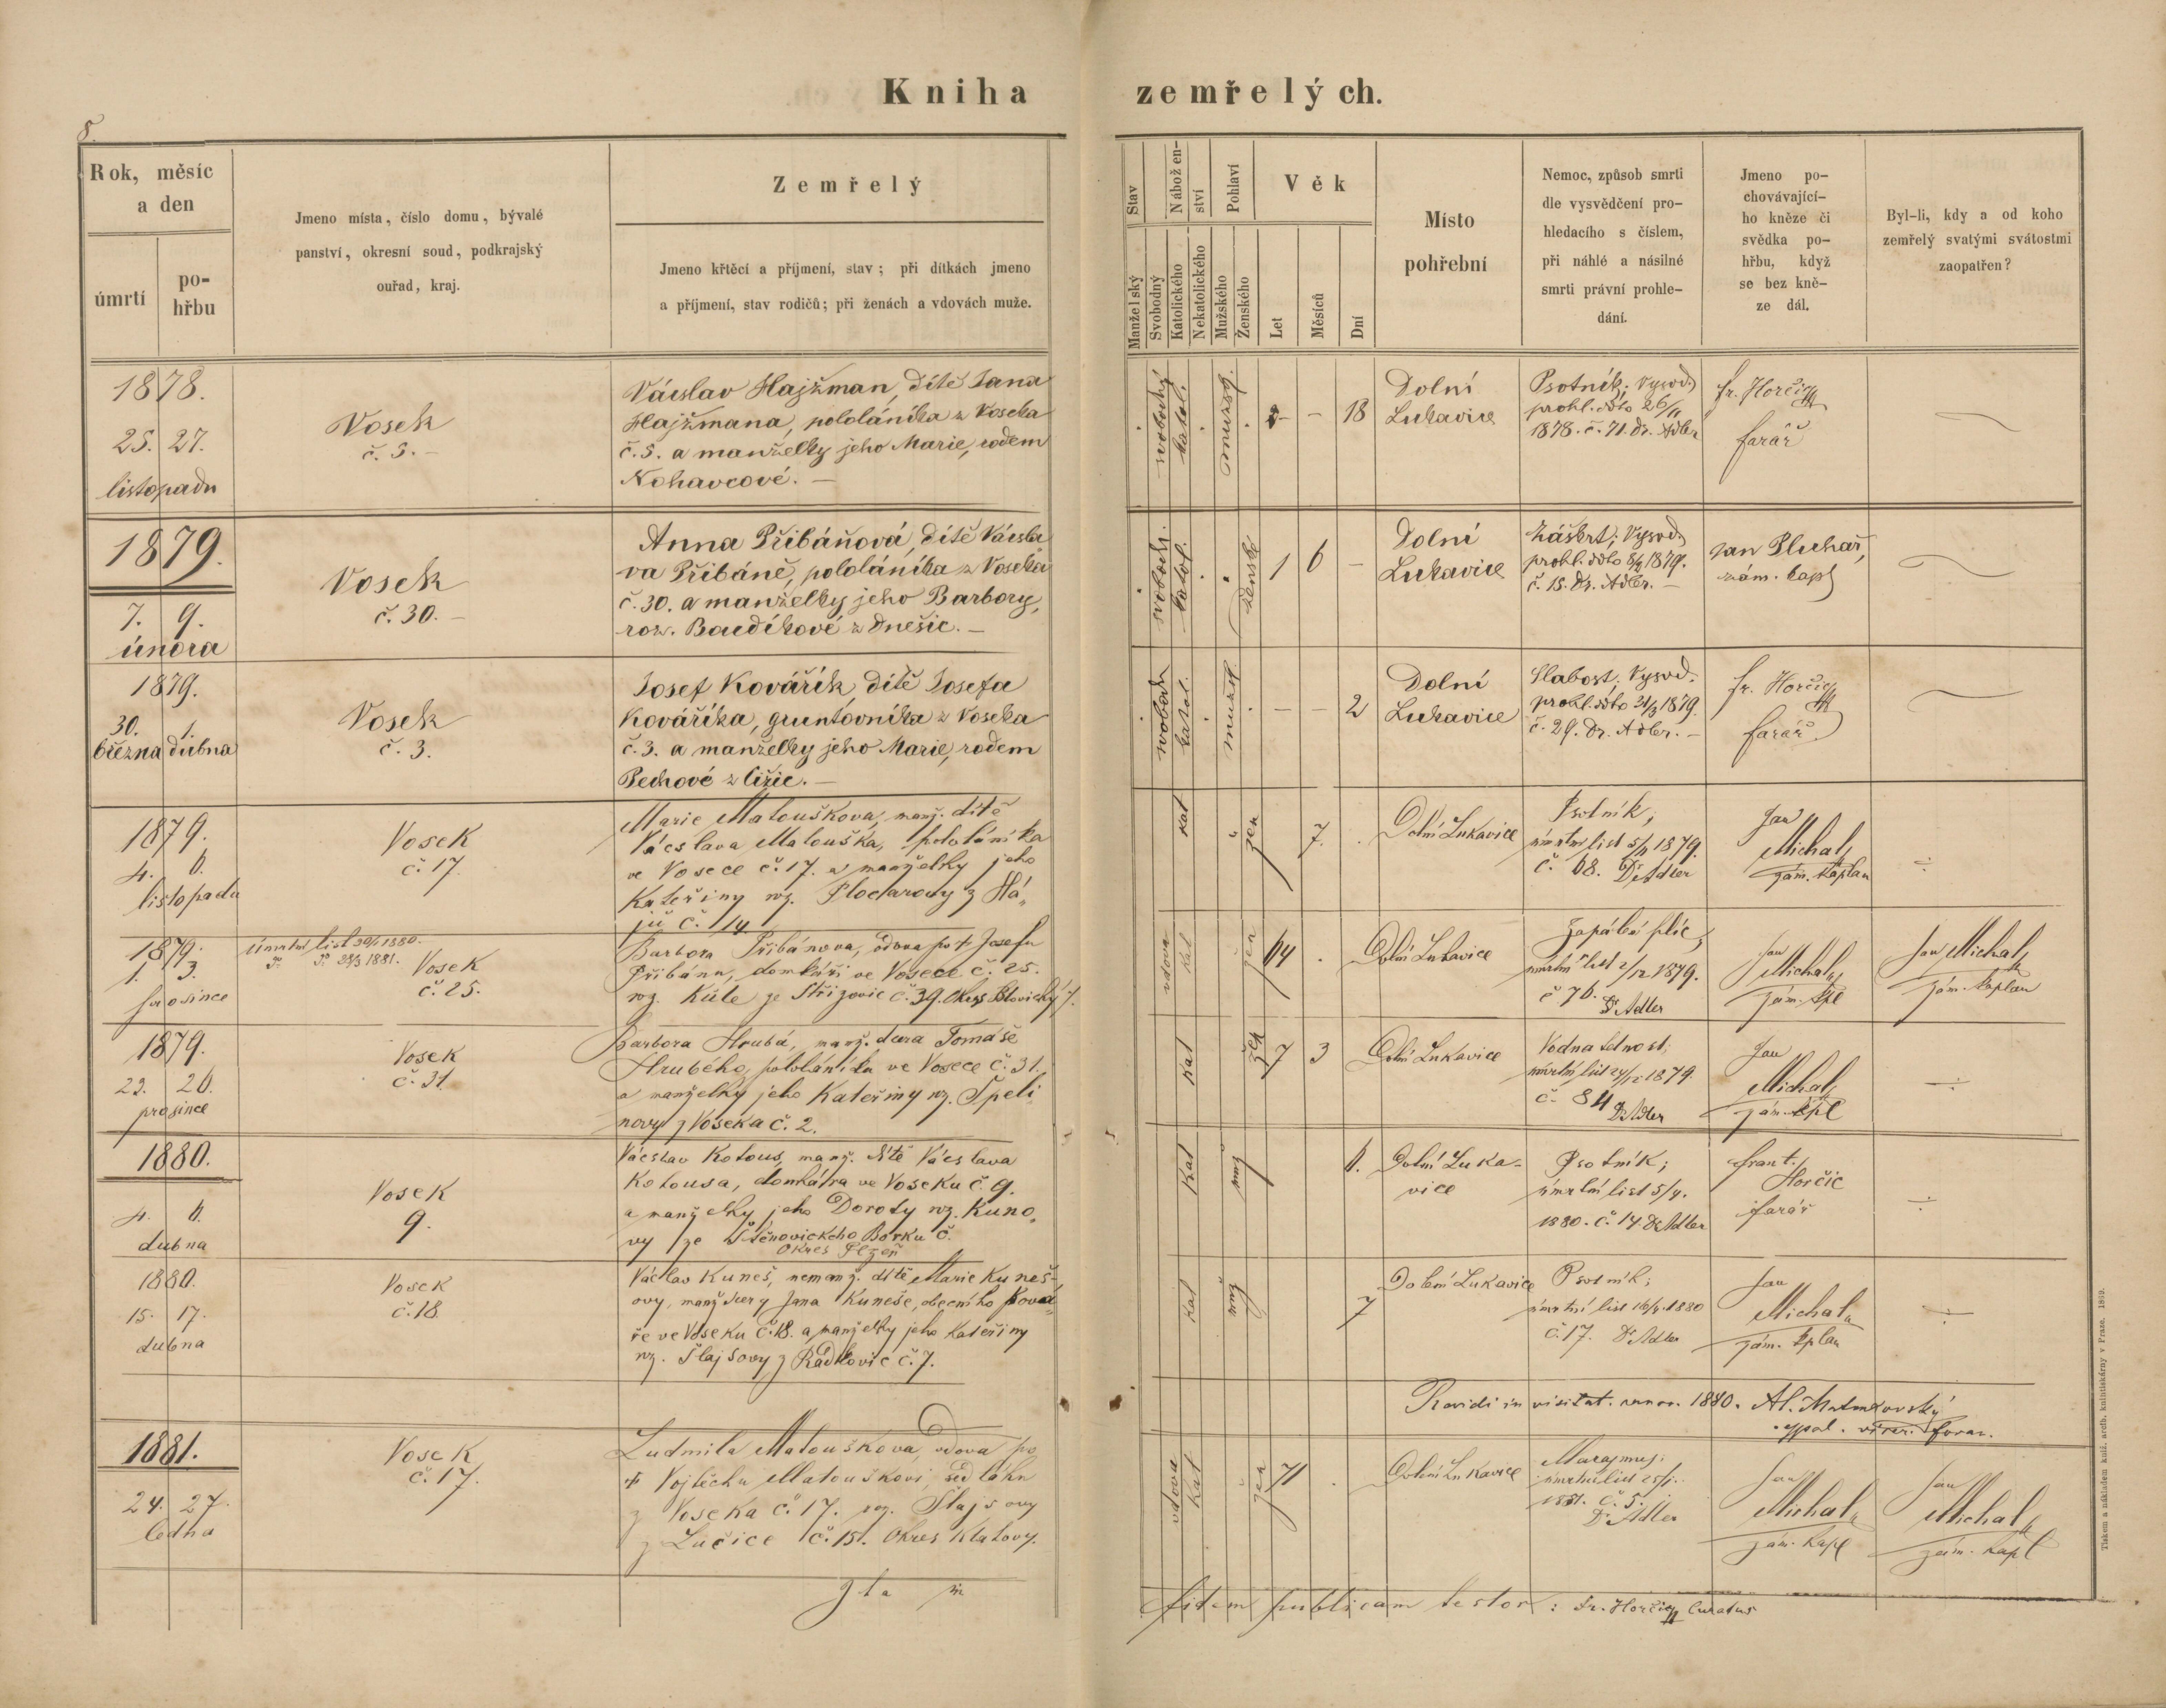 Kniha zemřelých.
8.
Rok, měsíc
a den
úmrtí
po-
hřbu
Jmeno místa, číslo domu, bývalé
panství, okresní soud, podkrajský
ouřad, kraj.
Zemřelý
Jmeno křtěcí a příjmení, stav; při dítkách jmeno
a příjmení, stav rodičů; při ženách a vdovách muže.
Stav
Manželský
Svobodný
Nábožen-
ství
Katolického
Nekatolického
Pohlaví
Mužského
Ženského
Věk
Let
Měsíců
Dní
Místo
pohřební
Nemoc, způsob smrti
dle vysvědčení pro-
hledacího s číslem,
při náhlé a násilné
smrti právní prohle-
dání.
Jmeno po-
chovávající-
ho kněze či
svědka po-
hřbu, když
se bez kně-
ze dál.
Byl-li, kdy a od koho
zemřelý svatými svátostmi
zaopatřen?
1878.
25. 27.
listopadu
Vosek
č. 5. –
Václav Hajžman, dítě Jana
Hajžmana, pololáníka z Voseka
č. 5. a manželky jeho Marie, rodem
Kohavcové. –
svobodný
katol.
mužsk.
– – 18
Dolní
Lukavice
Psotník; Vysvěd.
prohl. ddto 26/11
1878. č. 71. Dr. Adler
fr. Horčic
farář
1879.
7. 9.
února
Vosek
č. 30. –
Anna Přibáňová, dítě Václa
va Přibáně, pololáníka z Voseka
č. 30. a manželky jeho Barbory,
roz. Baudíkové z Dnešic. –
svobod.
katol.
žensk.
1 6 –
Dolní
Lukavice
Záškrt; Vysvěd.
prohl. ddto 8/2 1879.
č. 15. Dr. Adler. –
Jan Pluhař,
zám. kapl
1879.
30. 1.
března dubna
Vosek
č. 3.
Josef Kovářík, dítě Josefa
Kovaříka, gruntovníka z Voseka
č. 3. a manželky jeho Marie, rodem
Pechové z Ližic. –
svobod.
katol.
mužsk.
– – 2
Dolní
Lukavice
Slabost. Vysvěd.
prohl. ddto 31/3 1879.
č. 29. Dr. Adler. –
fr. Horčic
farář
1879.
4. 6.
listopadu
Vosek
č. 17.
Marie Matouškova, manž. dítě
Václava Matouška, pololáníka
ve Vosece č. 17. a manželky jeho
Kateřiny roz. Plocarovy z Há„
jů č. 14
kat
žen
7.
Dolní Lukavice
Psotník;
úmrtní list 5/11 1879.
č. 68. Dr Adler
Jan
Michal,
zám. kaplan
÷
1879.
1. 3.
prosince
úmrtní list 30/1 1880.
Vosek
č. 25.
Barbora Přibánova, vdova po † Josefu
Přibánu, domkáři ve Vosece č. 25.
roz. Kůle ze Střížovic č. 39. Okres Blovický
vdova
kat
žen
64
Dolní Lukavice
Zapálení plic,
úmrtní list 2/12 1879.
č 76. Dr Adler
Jan
Michal,
zám. kpl
Jan Michal,
zám. kaplan
1879.
23. 26.
prosince
Vosek
č. 31.
Barbora Hrubá, manž. dcera Tomáše
Hrubého, pololáníka ve Vosece č. 31.
a manželky jeho Kateřiny roz. Špeli
novy z Voseka č. 2.
kat
žen
7 3
Dolní Lukavice
Vodnatelnost;
úmrtní list 24/12 1879.
č. 84 Dr Adler
Jan
Michal,
zám. kpl
÷
1880.
4. 6.
dubna
Vosek
9.
Václav Kotous, manž. dítě Václava
Kotousa, domkáře ve Voseku č. 9.
a manželky jeho Doroty roz. Kuno„
vy ze Štěnovického Borku č.
Okres Plzeň
kat
muž
6.
Dolní Luka-
vice
Psotník;
úmrtní list 5/4.
1880. č. 14. Dr Adler
frant.
Horčic
farář
÷
1880.
15. 17.
dubna
Vosek
č. 18.
Václav Kuneš, nemanž. dítě Marie Kuneš-
ovy, manž dcery Jana Kuneše, obecního ková
ře ve Voseku č. 18. a manželky jeho Kateřiny
roz. Šlajsovy z Radkovic č. 7.
kat
muž
7
Dolení Lukavice
Psotník;
úmrtní list 16/4. 1880
č. 17. Dr Adler
Jan
Michal,
zám. kplan
÷
Revidi in visitat. canon. 1880.
1881.
24. 27.
ledna
Vosek
č. 17.
Ludmila Matouškova, vdova po
† Vojtěchu Matouškovi, sedláku
z Voseka č. 17. roz. Šlajsovy
z Lučice č. 15. Okres Klatovy.
vdova
kat
žen
71
Dolení Lukavice
Marasmus;
úmrtní list 25/1.
1881. č. 5.
Dr Adler
Jan
Michal,
zám. kapl
Jan
Michal,
zám. kapl
Ita in fidem publicam testor: Fr. Horčic Curatus
Tiskem a nákladem kníž. arcib. knihtiskárny v Praze. 1859.